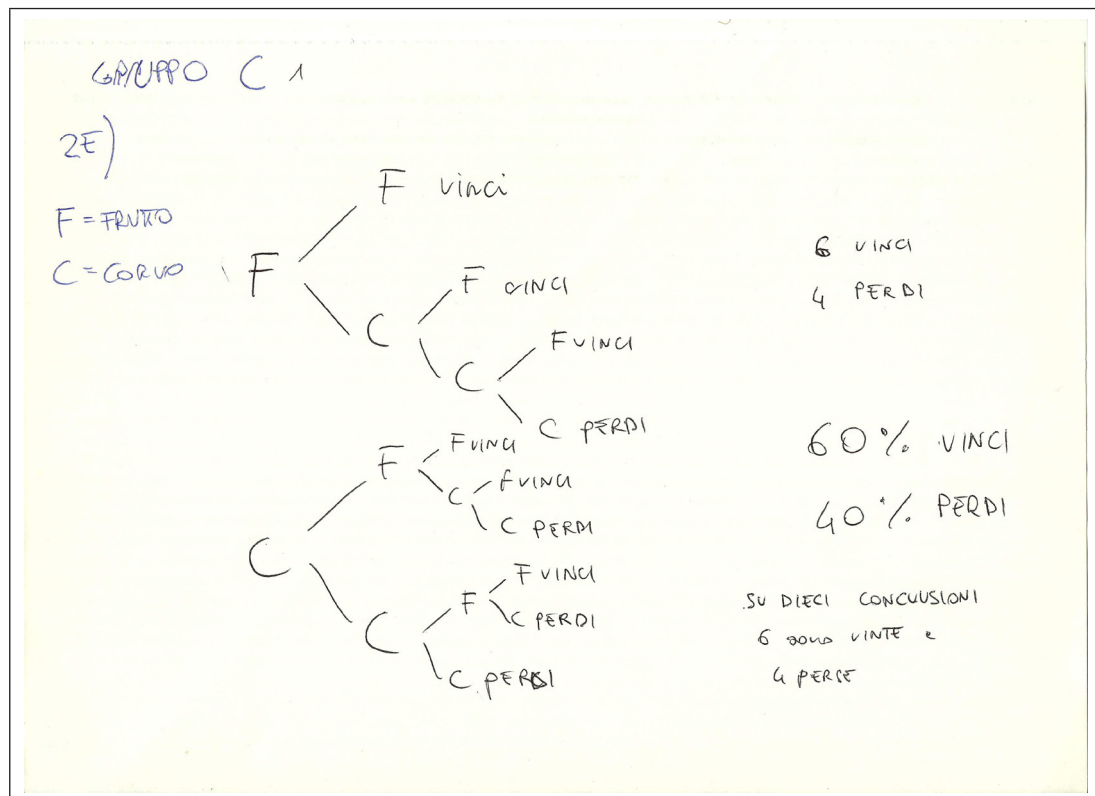 GRUPPO C 1
2E)
F = FRUTTO
C = CORVO
F
F vinci
C
F VINCI
C
F VINCI
C PERDI
C
F
F VINCI
C
F VINCI
C PERDI
C
F
F VINCI
C PERDI
C PERDI
6 VINCI
4 PERDI
60% VINCI
40% PERDI
SU DIECI CONCLUSIONI
6 sono VINTE e
4 PERSE